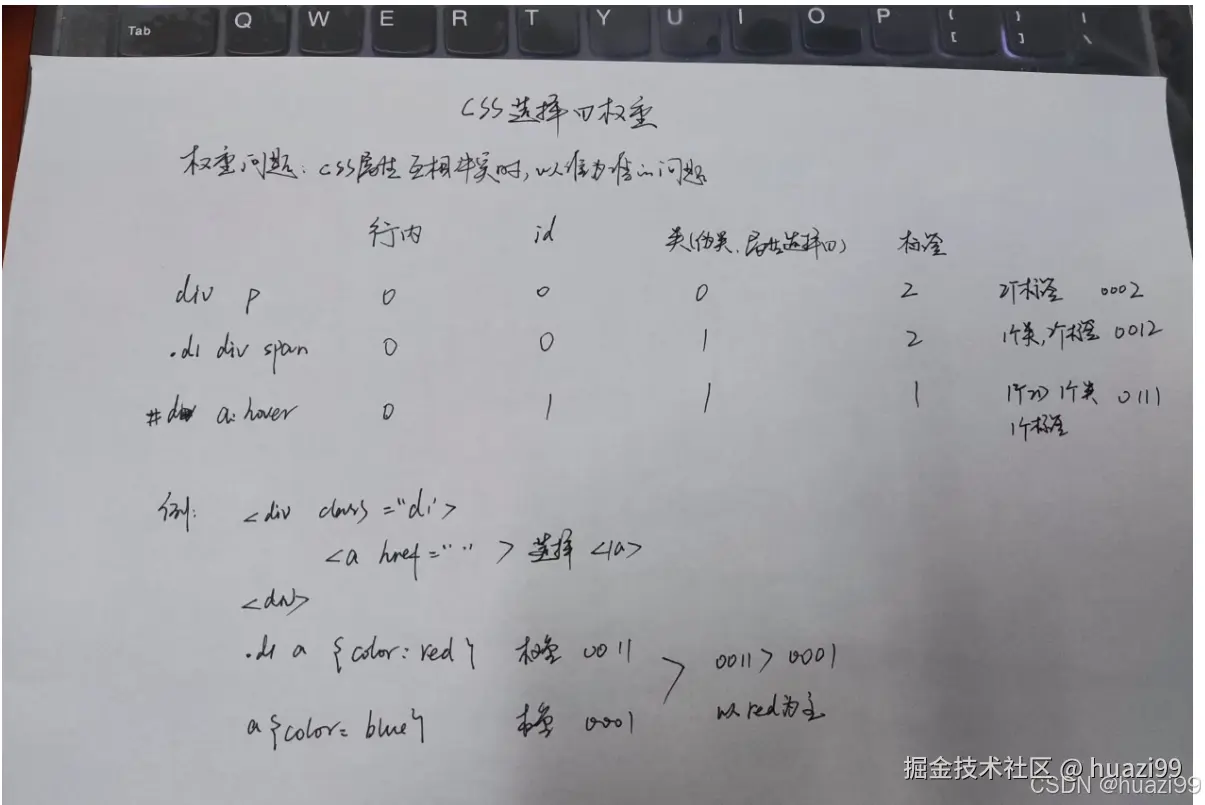 Tab Q W E R T Y U I O P { [ } ] | \
CSS选择四权重
权重问题: CSS属性互相冲突时,以谁为准的问题
行内 id 类(伪类、属性选择四) 标签
div p 0 0 0 2 2个标签 0002
.d1 div span 0 0 1 2 1个类,2个标签 0012
# a:hover 0 1 1 1 1个id 1个类 0111
1个标签
例: <div class="d1'>
<a href=" " > 选择 </a>
<div>
.d1 a {color: red} 权重 0011
0011 > 0001
a{color= blue} 权重 0001
以red为主
掘金技术社区 @ huazi99
CSDN @huazi99